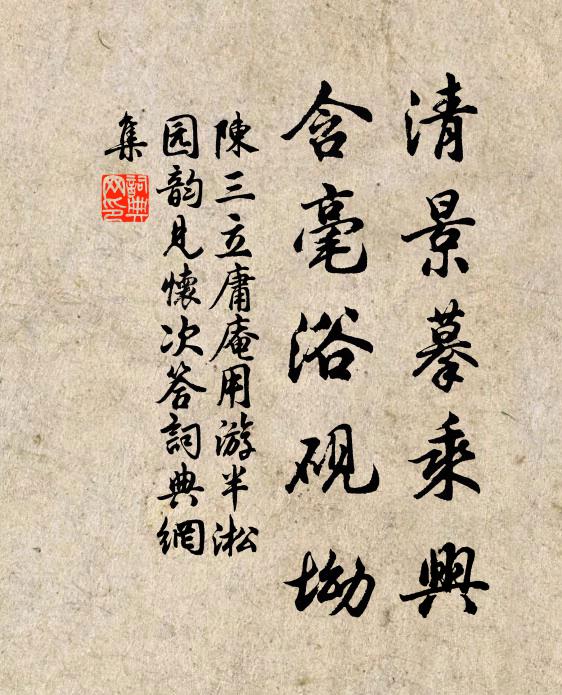 清景摹乘興
含毫浴硯坳
陳三立庸庵用游半淞
园韵見懷次答詞典網
集
詞典网印